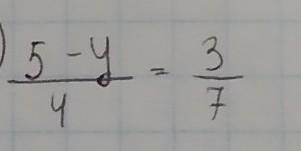 ) (5 - y)/y = 3/7